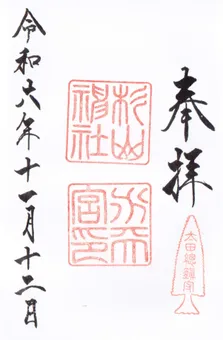 奉拝
杉山神社
太田總鎮守
令和六年十一月十二日